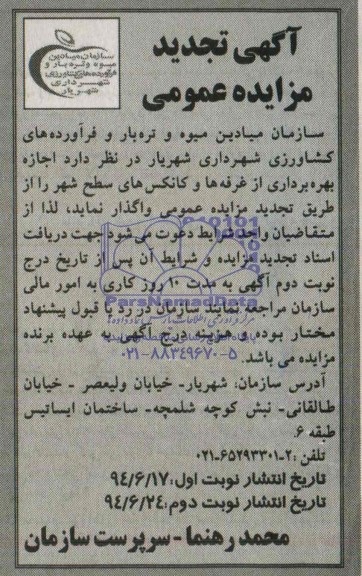 سازمان میادین
میوه و تره بار و
فرآورده‌های کشاورزی
شهرداری
شهریار
آگهی تجدید
مزایده عمومی
سازمان میادین میوه و تره‌بار و فرآورده‌های
کشاورزی شهرداری شهریار در نظر دارد اجازه
بهره‌برداری از غرفه‌ها و کانکس‌های سطح شهر را از
طریق تجدید مزایده عمومی واگذار نماید، لذا از
متقاضیان واجد شرایط دعوت می‌شود جهت دریافت
اسناد تجدید مزایده و شرایط آن پس از تاریخ درج
نوبت دوم آگهی به مدت ۱۰ روز کاری به امور مالی
سازمان مراجعه نمایند سازمان در رد یا قبول پیشنهاد
مختار بوده و هزینه درج آگهی به عهده برنده
مزایده می باشد.
ParsNamadData
۰۲۱-۸۸۳۴۹۶۷۰-۵
آدرس سازمان: شهریار- خیابان ولیعصر - خیابان
طالقانی- نبش کوچه شلمچه- ساختمان ایساتیس
طبقه ۶
تلفن :۲-۶۵۲۹۳۳۰۱-۰۲۱
تاریخ انتشار نوبت اول: ۹۴/۶/۱۷
تاریخ انتشار نوبت دوم: ۹۴/۶/۲۴
محمد رهنما - سرپرست سازمان